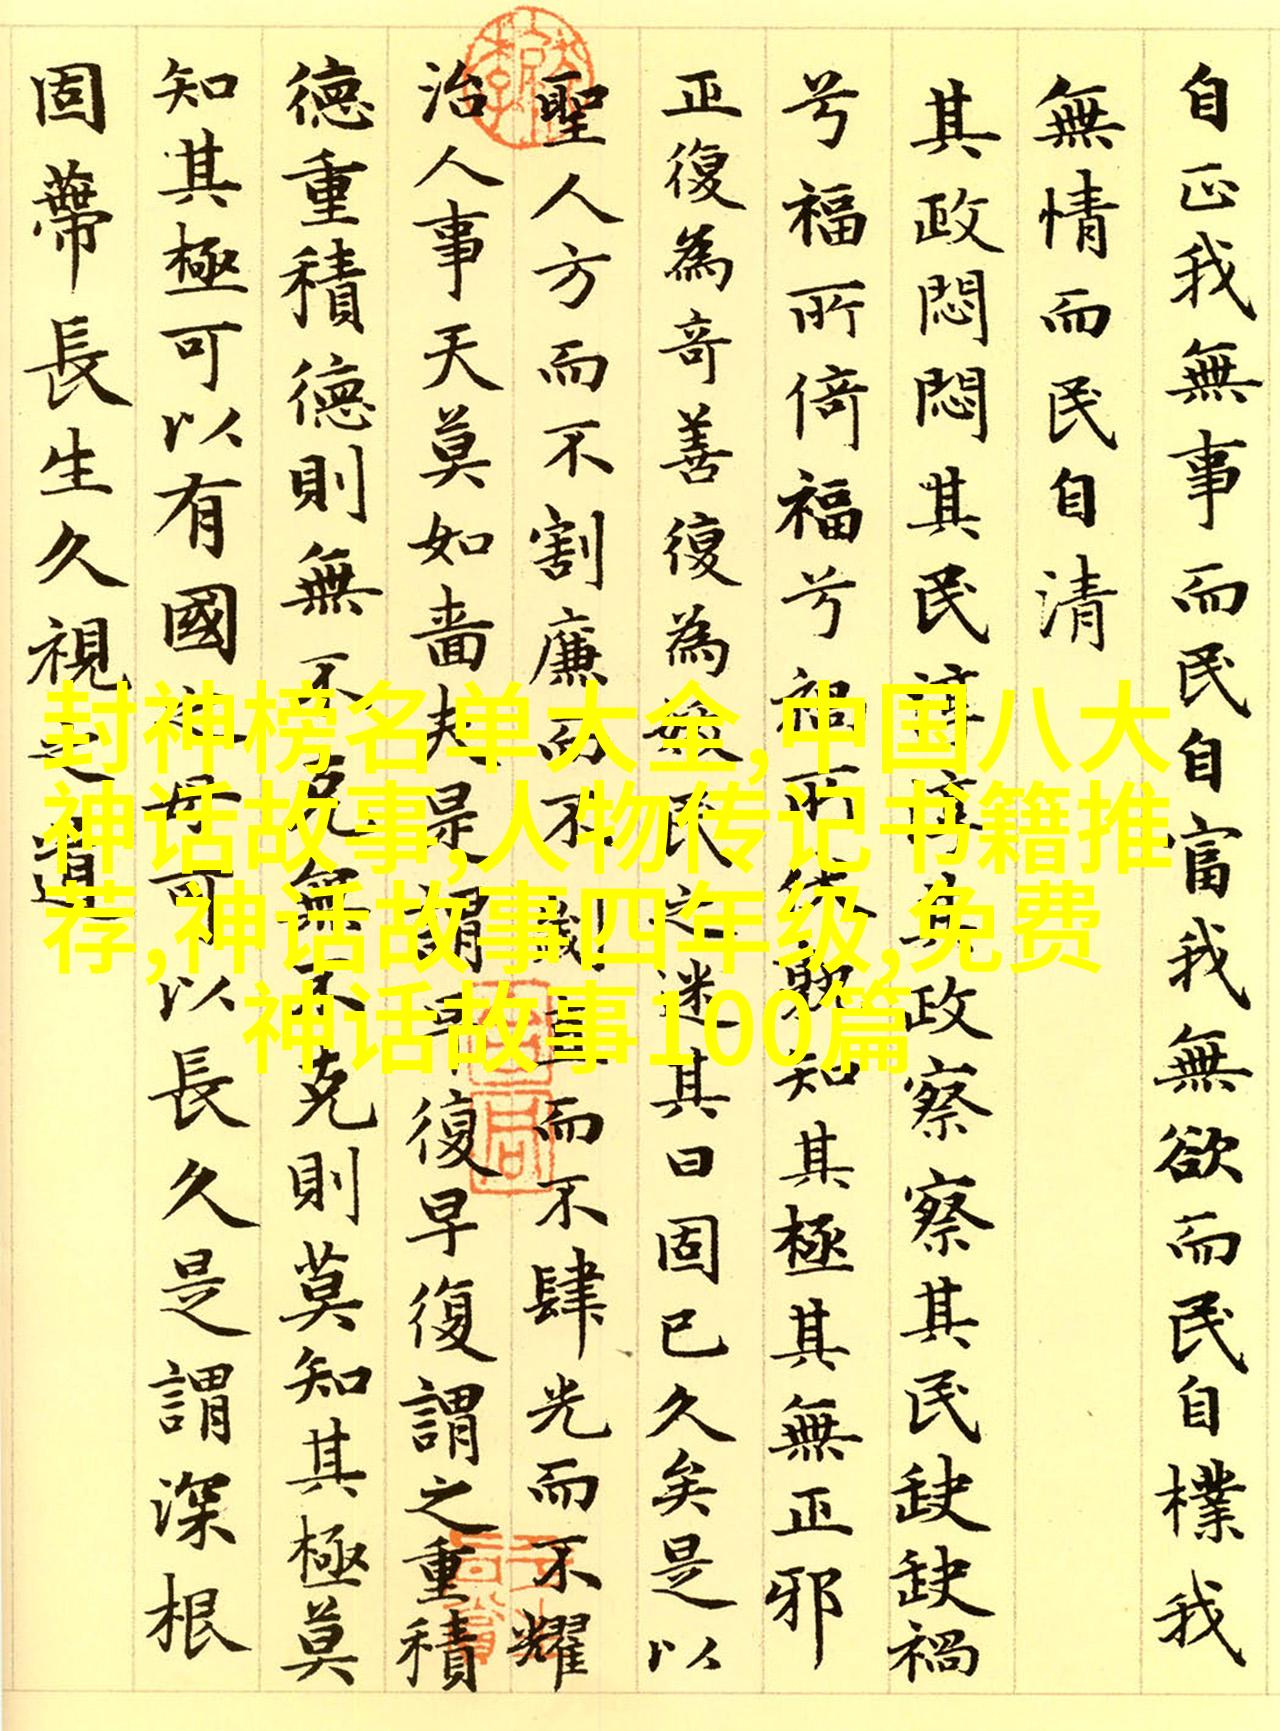 自正我無事而民自富我無欲而民自樸我
無情而民自清
其政悶悶其民淳淳其政察察其民缺缺禍
兮福所倚福兮禍所伏孰知其極其無正邪
正復為奇善復為妖民之迷其日固已久矣是以
聖人方而不割廉而不劌直而不肆光而不耀
治人事天莫如嗇夫是謂早復早復謂之重積
德重積德則無不克無不克則莫知其極莫
知其極可以有國之母可以長久是謂深根
固蔕長生久視之道
封神榜名单大全,中国八大
神话故事,人物传记书籍推
荐,神话故事四年级,免费
神话故事100篇